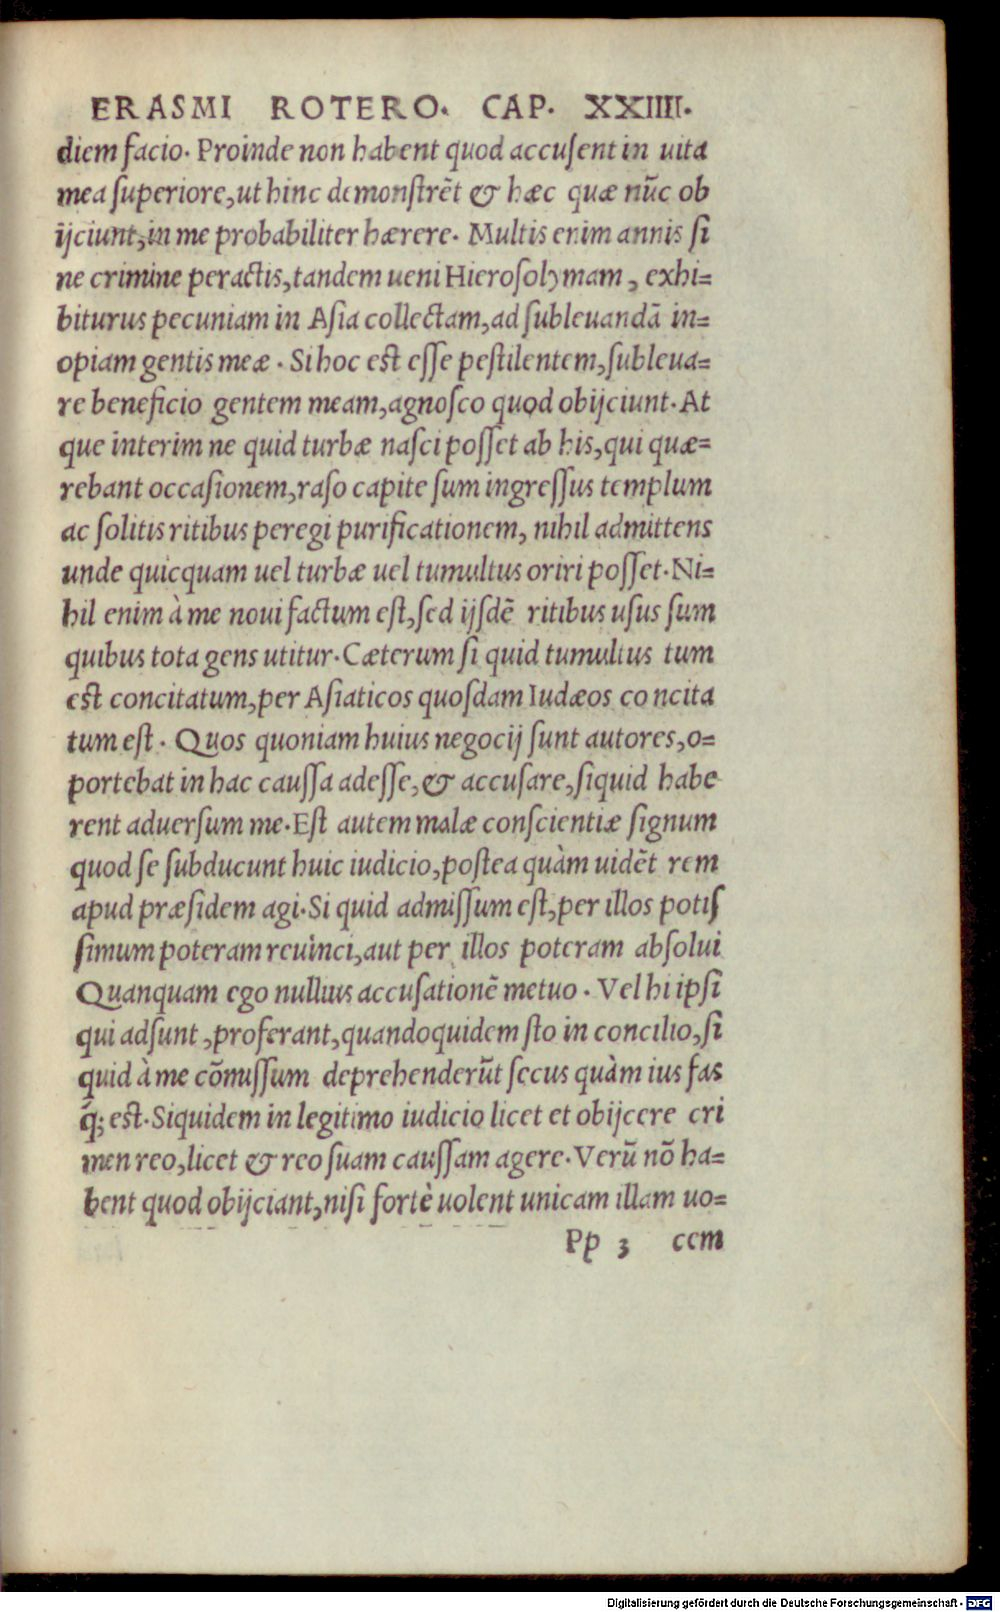 ERASMI ROTERO. CAP. XXIIII.
diem facio. Proinde non habent quod accuſent in uita
mea ſuperiore, ut hinc demonſtrēt & hæc quæ nūc ob
ijciunt, in me probabiliter hærere. Multis enim annis ſi
ne crimine peractis, tandem ueni Hieroſolymam, exhi-
biturus pecuniam in Aſia collectam, ad ſubleuandā in-
opiam gentis meæ. Si hoc eſt eſſe peſtilentem, ſubleua-
re beneficio gentem meam, agnoſco quod obijciunt. At
que interim ne quid turbæ naſci poſſet ab his, qui quæ-
rebant occaſionem, raſo capite ſum ingreſſus templum
ac ſolitis ritibus peregi purificationem, nihil admittens
unde quicquam uel turbæ uel tumultus oriri poſſet. Ni-
hil enim à me noui factum eſt, ſed ijſdē ritibus uſus ſum
quibus tota gens utitur. Cæterum ſi quid tumultus tum
eſt concitatum, per Aſiaticos quoſdam Iudæos concita
tum eſt. Quos quoniam huius negocij ſunt autores, o-
portebat in hac cauſſa adeſſe, & accuſare, ſiquid habe
rent aduerſum me. Eſt autem malæ conſcientiæ ſignum
quod ſe ſubducunt huic iudicio, poſtea quàm uidēt rem
apud præſidem agi. Si quid admiſſum eſt, per illos potiſ
ſimum poteram reuinci, aut per illos poteram abſolui
Quanquam ego nullius accuſationē metuo. Vel hi ipſi
qui adſunt, proferant, quandoquidem ſto in concilio, ſi
quid à me cōmiſſum deprehenderūt ſecus quàm ius fas
q̃; eſt. Siquidem in legitimo iudicio licet et obijcere cri
men reo, licet & reo ſuam cauſſam agere. Verū nō ha-
bent quod obijciant, niſi fortè uolent unicam illam uo-
Pp 3 cem
Digitalisierung gefördert durch die Deutsche Forschungsgemeinschaft - DFG